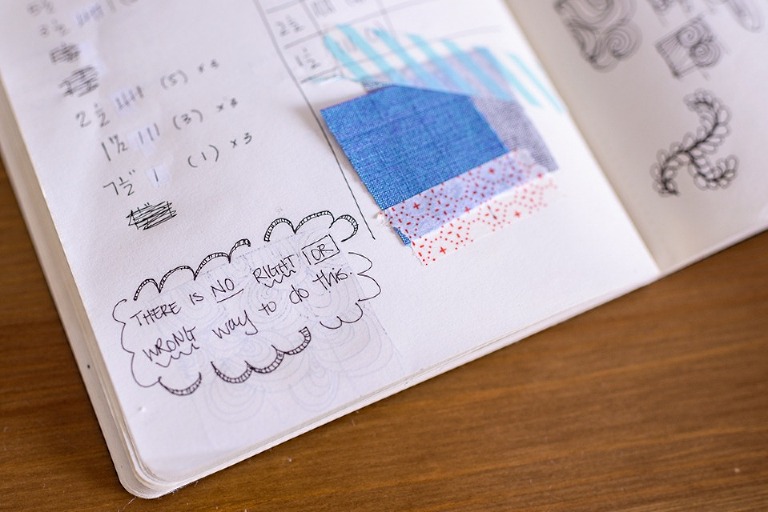 2½ (5) x 4
1½ (3) x 4
7½" 1 (1) x 3
2½
1½
THERE IS NO RIGHT OR
WRONG way to do this